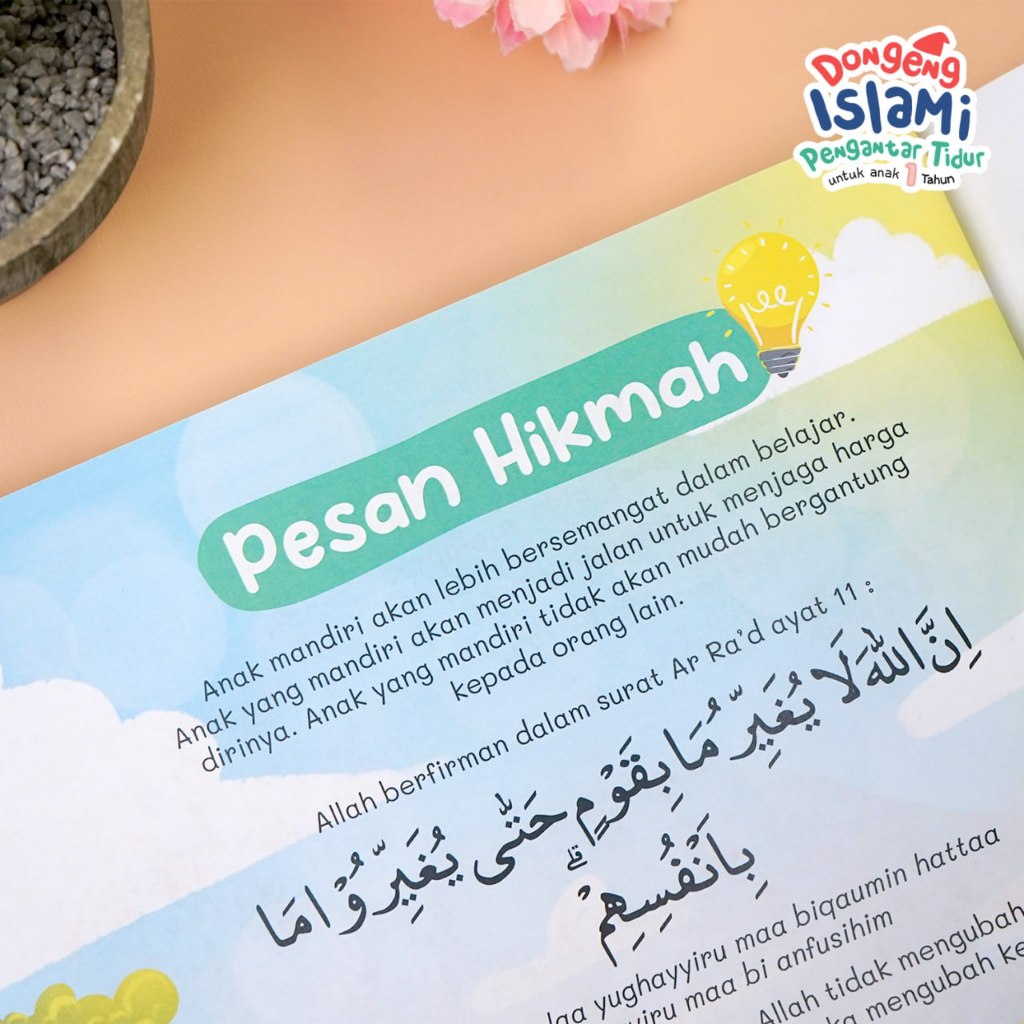 Dongeng
Islami
Pengantar Tidur
untuk anak 1 Tahun
Pesan Hikmah
Anak mandiri akan lebih bersemangat dalam belajar.
Anak yang mandiri akan menjadi jalan untuk menjaga harga
dirinya. Anak yang mandiri tidak akan mudah bergantung
kepada orang lain.
Allah berfirman dalam surat Ar Ra'd ayat 11 :
اِنَّ اللّٰهَ لَا يُغَيِّرُ مَا بِقَوْمٍ حَتّٰى يُغَيِّرُوْا مَا
بِاَنْفُسِهِمْۗ
laa yughayyiru maa biqaumin hattaa
maa bi anfusihim
Allah tidak mengubah
mengubah